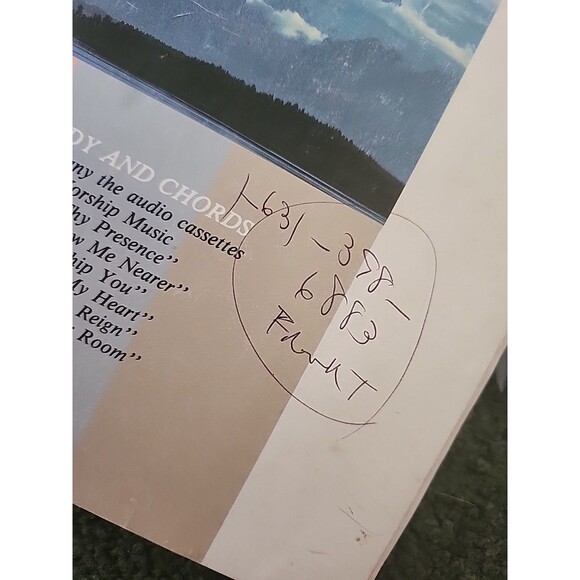 DY AND CHORDS
ny the audio cassettes
orship Music
hy Presence”
w Me Nearer”
hip You”
My Heart”
Reign”
Room”
1-631-398-
6883